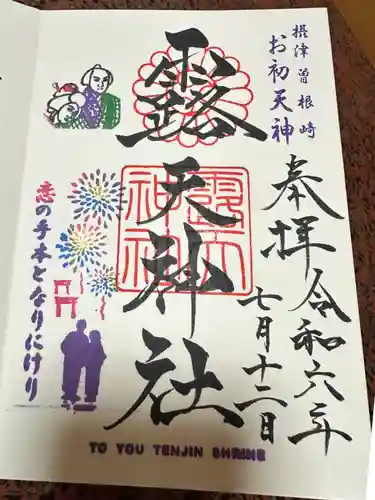 摂津曽根崎
お初天神
奉拝
令和六年
七月十二日
露天神社
露天神社
恋の手本となりにけり
TO YOU TENJIN SHRINE